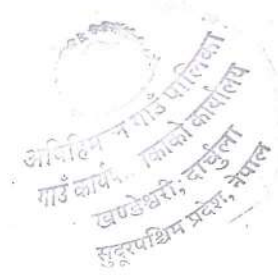 गाउँ पालिका
गाउँ कार्यपा... कार्यालय
खण्डेश्वरी, दार्चुला
सुदूरपश्चिम प्रदेश, नेपाल